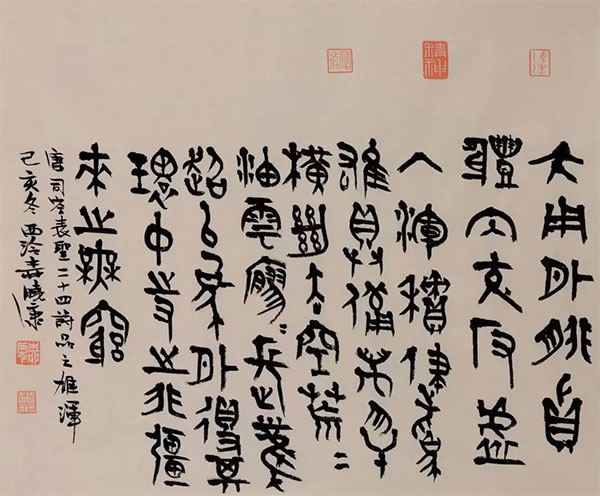 大用外腓真
體內充反虛
入渾積健為
雄具備萬物
橫絕太空荒〻
油雲寥〻長風
超以象外得其
環中持之匪強
來之無窮
唐司空表聖二十四詩品之雄渾
己亥冬西泠曉康
精神